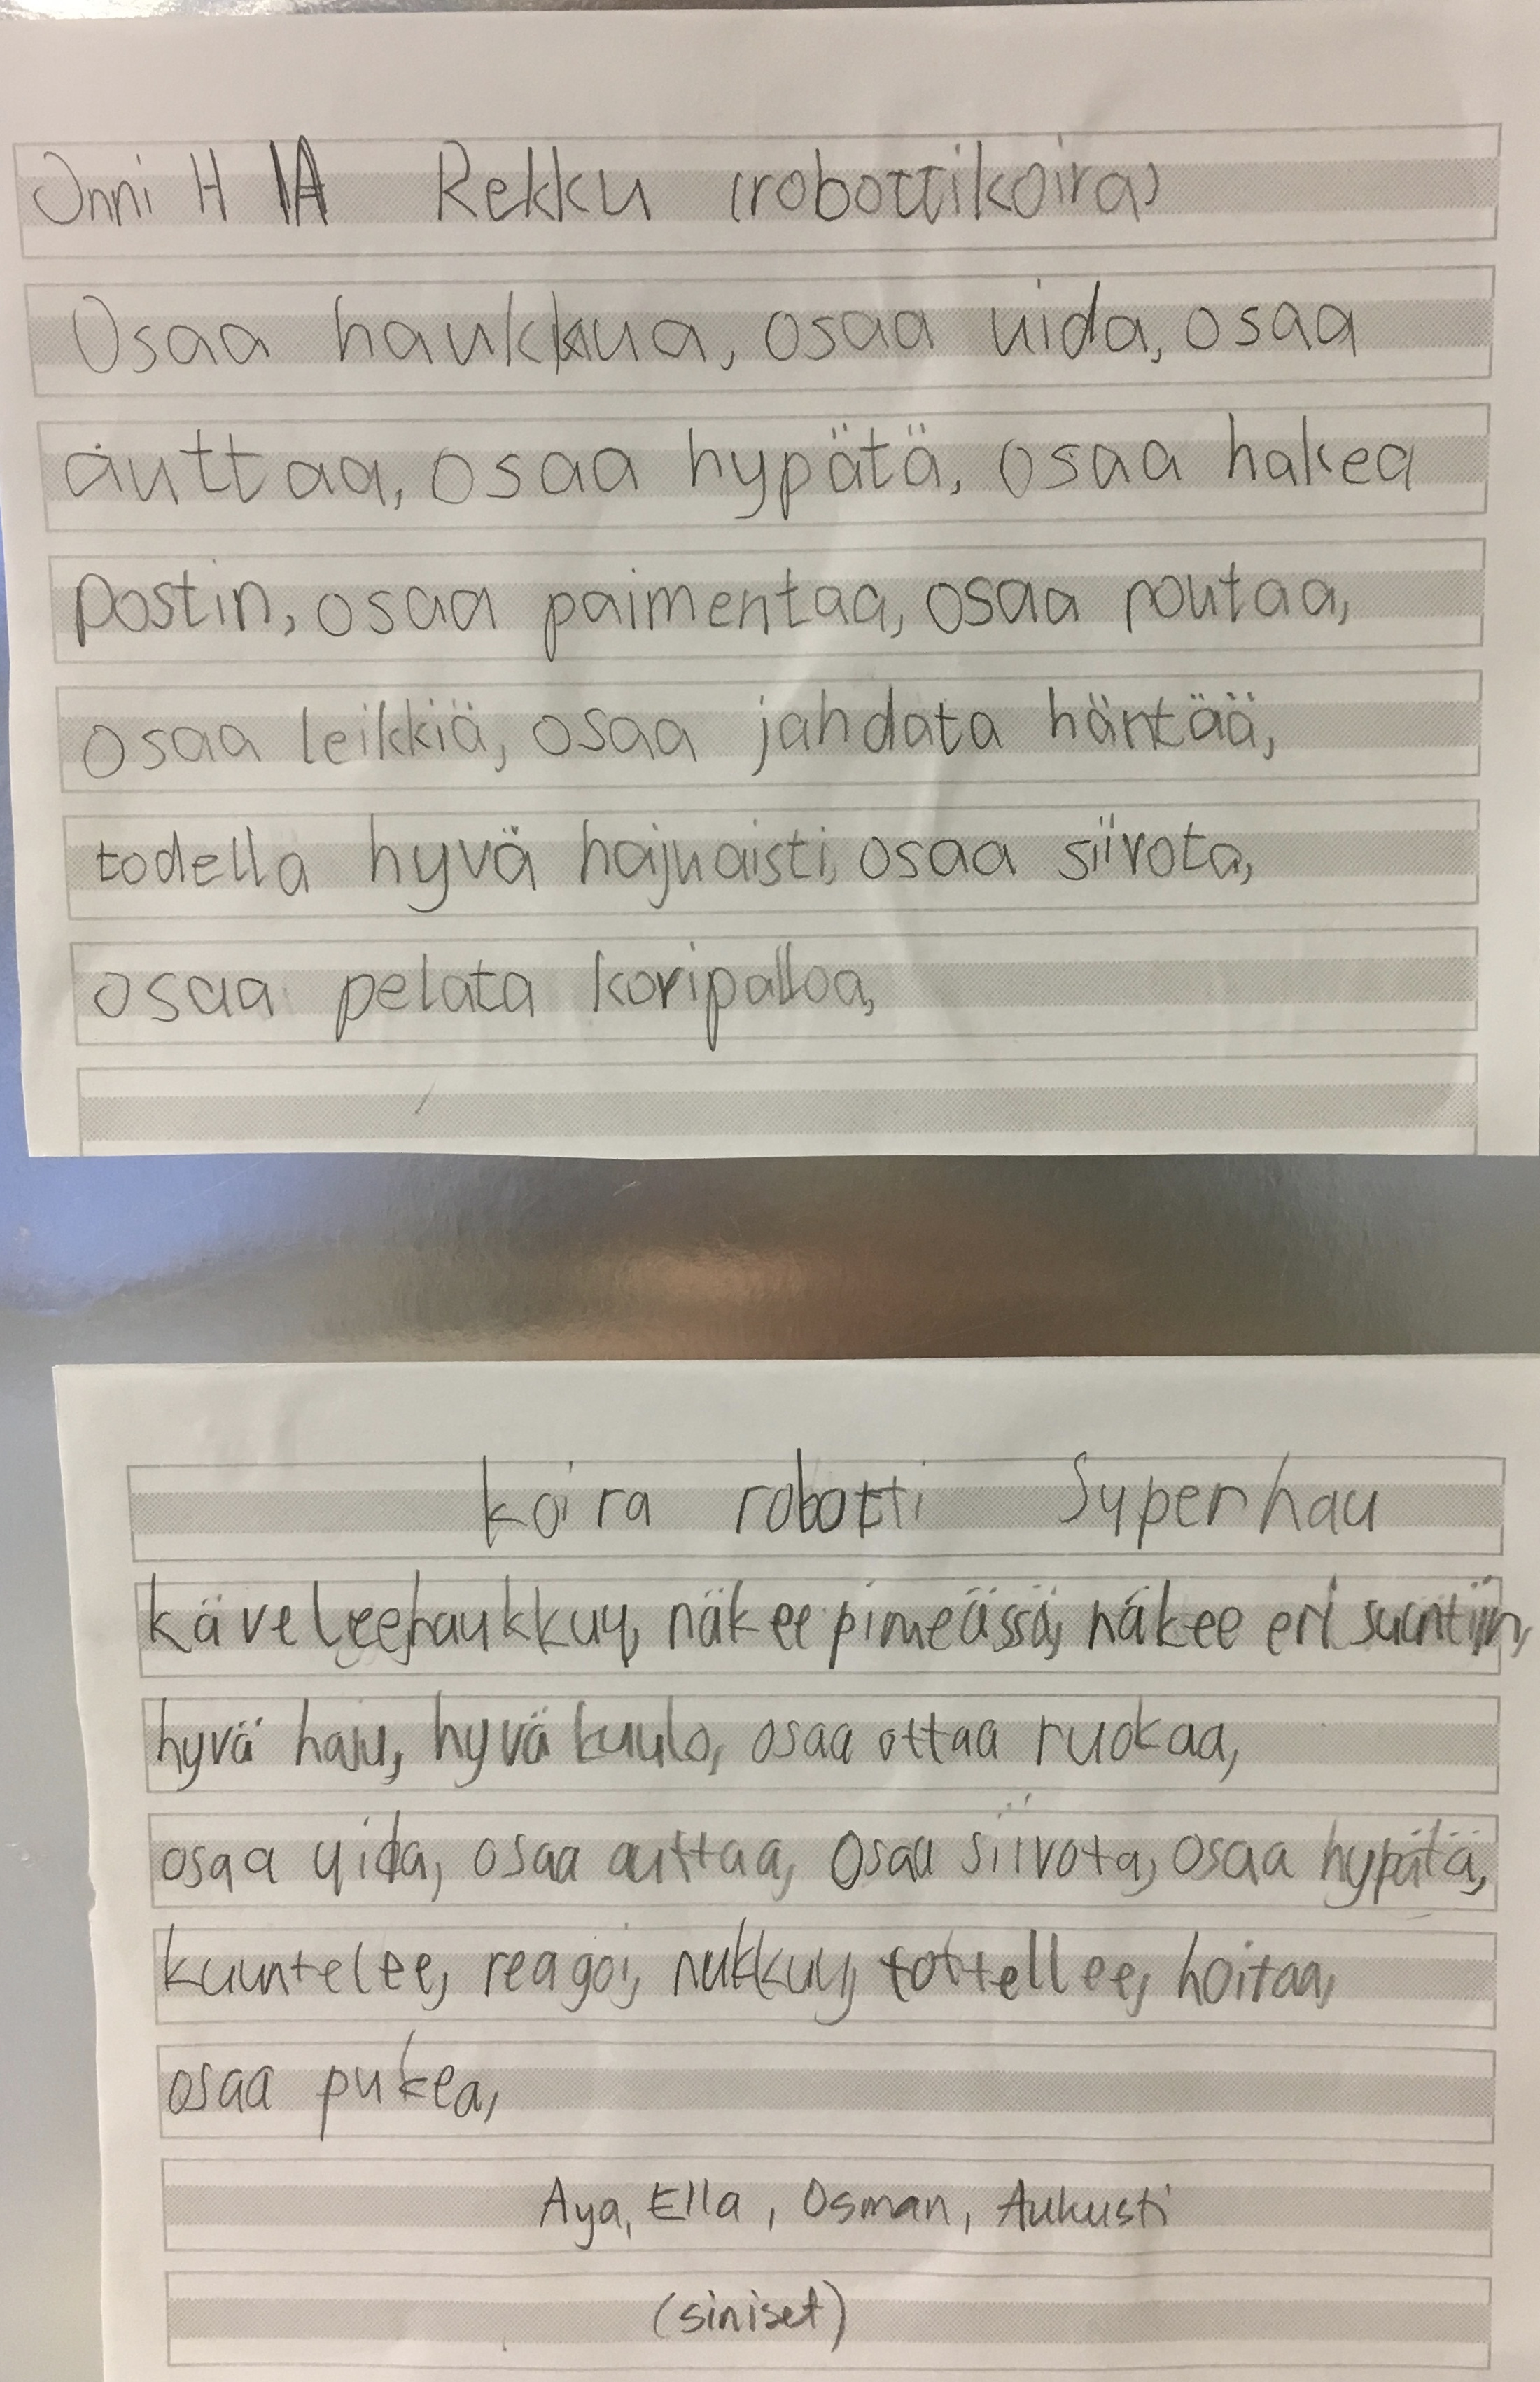 Onni H 1A Rekku (robottikoira)
Osaa haukkua, osaa uida, osaa
auttaa, osaa hypätä, osaa hakea
postin, osaa paimentaa, osaa noutaa,
osaa leikkiä, osaa jahdata häntää,
todella hyvä hajuaisti, osaa siivota,
osaa pelata koripalloa,
koira robotti Superhau
kävelee, haukkuu, näkee pimeässä, näkee eri suuntiin,
hyvä haju, hyvä kuulo, osaa ottaa ruokaa,
osaa uida, osaa auttaa, osaa siivota, osaa hypätä,
kuuntelee, reagoi, nukkuu, tottellee, hoitaa,
osaa pukea,
Aya, Ella, Osman, Aukusti
(siniset)